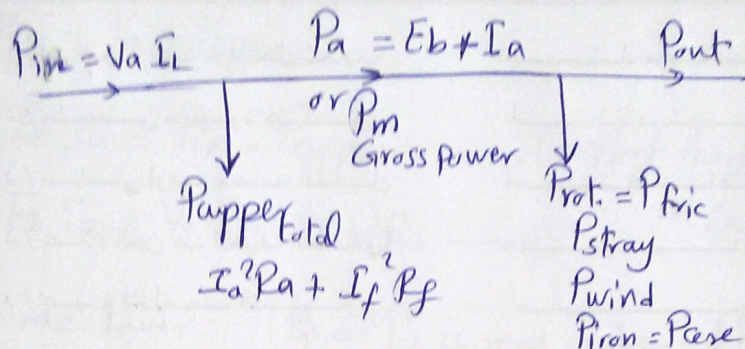 Pin = Va IL
Pa = Eb * Ia
Pout
or Pm
Gross power
Pcopper total
Ia²Ra + If²Rf
Prot. = Pfric
Pstray
Pwind
Piron = Pcore